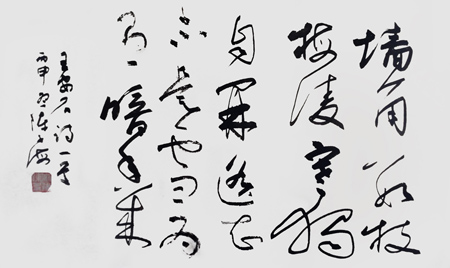 墙角数枝
梅凌寒独
自开遥知
不是雪为
有暗香来
王安石诗一首
丙申